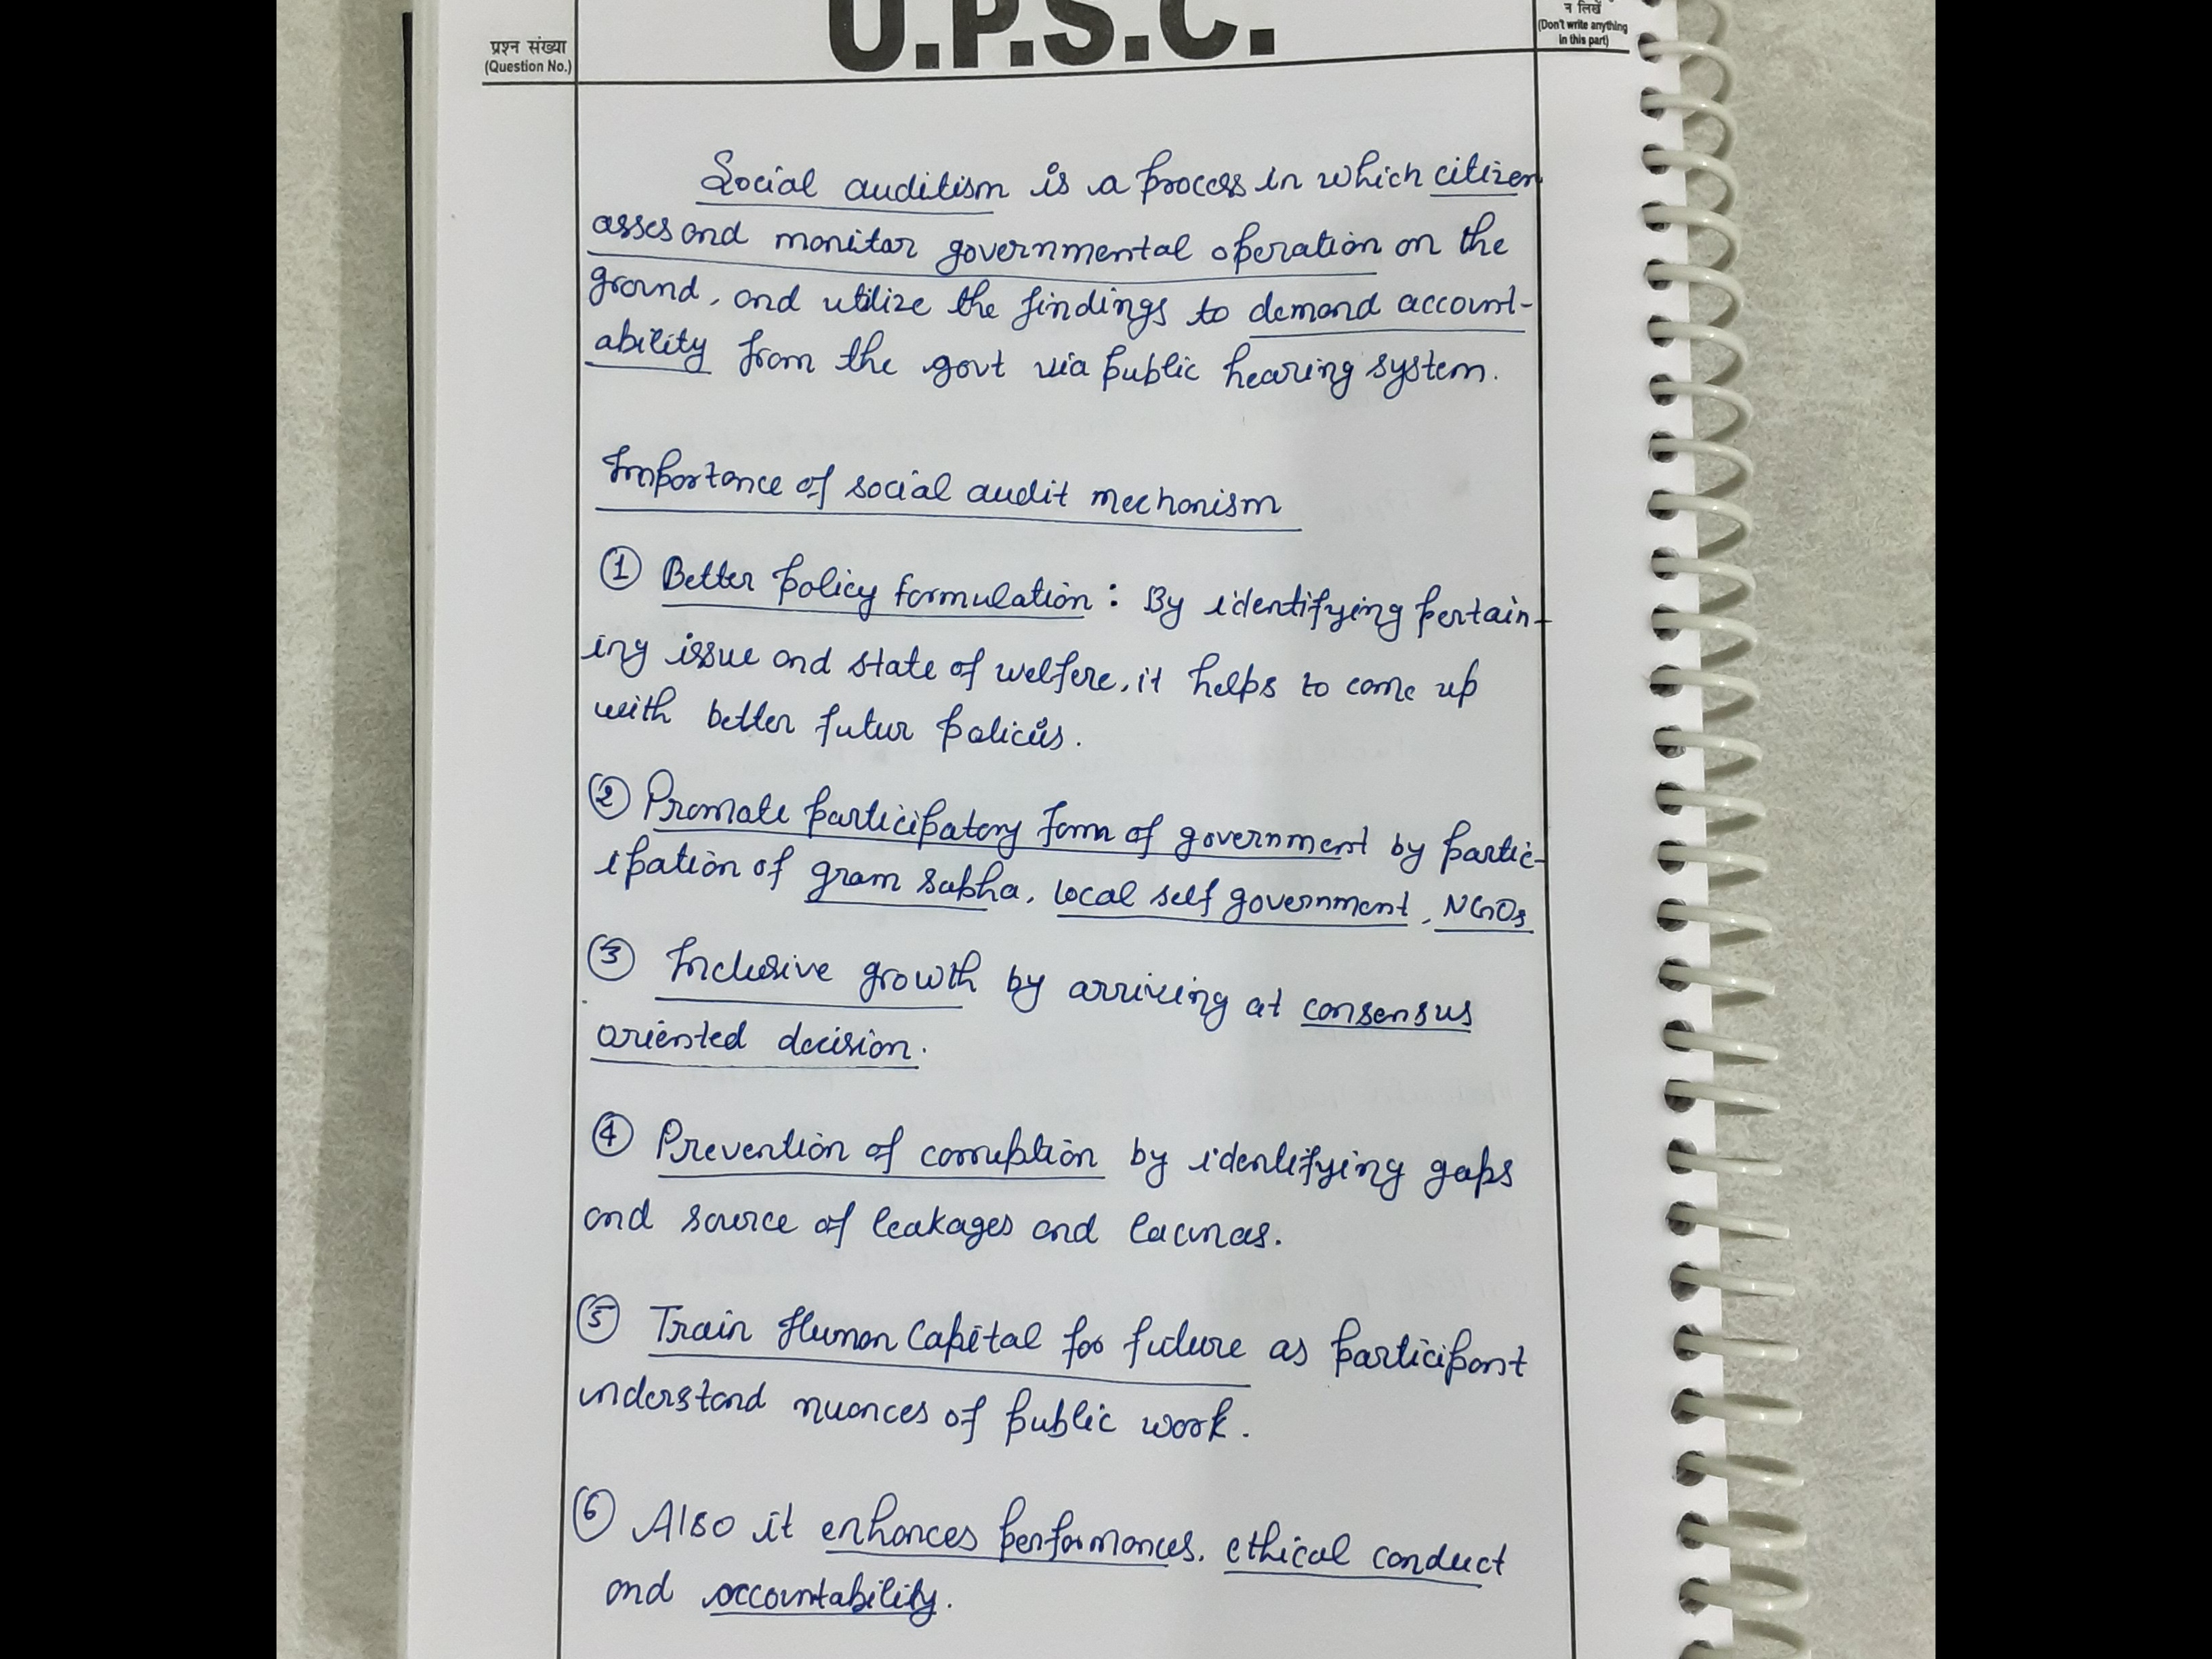 U.P.S.C.
प्रश्न संख्या
(Question No.)
न लिखें
(Don't write anything
in this part)
Social auditism is a process in which citizen
asses and monitor governmental operation on the
ground, and utilize the findings to demand account-
ability from the govt via public hearing system.
Importance of social audit mechanism
① Better policy formulation : By identifying pertain-
ing issue and state of welfere, it helps to come up
with better futur policies.
② Promate participatory form of government by partic-
ipation of gram sabha, local self government, NGOs
③ Inclusive growth by arriving at consensus
oriented decision.
④ Prevention of corruption by identifying gaps
and source of leakages and lacunas.
⑤ Train Human Capital for future as participant
understand nuances of public work.
⑥ Also it enhances performances, ethical conduct
and accountability.